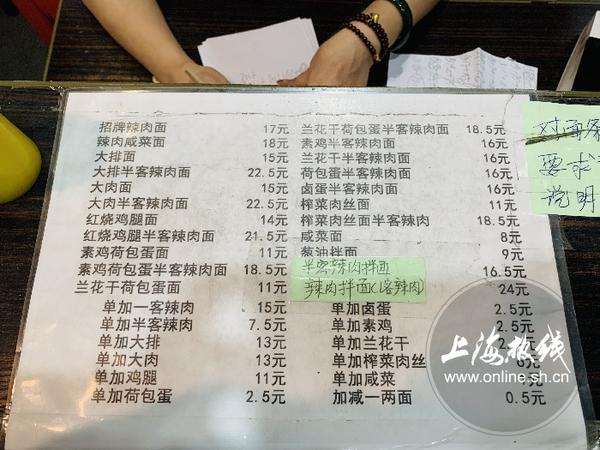 招牌辣肉面 17元
辣肉咸菜面 18元
大排面 15元
大排半客辣肉面 22.5元
大肉面 15元
大肉半客辣肉面 22.5元
红烧鸡腿面 14元
红烧鸡腿半客辣肉面 21.5元
素鸡荷包蛋面 11元
素鸡荷包蛋半客辣肉面 18.5元
兰花干荷包蛋面 11元
单加一客辣肉 15元
单加半客辣肉 7.5元
单加大排 13元
单加大肉 13元
单加鸡腿 11元
单加荷包蛋 2.5元
兰花干荷包蛋半客辣肉面 18.5元
素鸡半客辣肉面 16元
兰花干半客辣肉面 16元
荷包蛋半客辣肉面 16元
卤蛋半客辣肉面 16元
榨菜肉丝面 11元
榨菜肉丝面半客辣肉 18.5元
咸菜面 8元
葱油拌面 9元
半客辣肉拌面 16.5元
辣肉拌面(1客辣肉) 24元
单加卤蛋 2.5元
单加素鸡 2.5元
单加兰花干
单加榨菜肉丝
单加咸菜
加减一两面 0.5元
对面条
要求
说明
上海热线
www.online.sh.cn